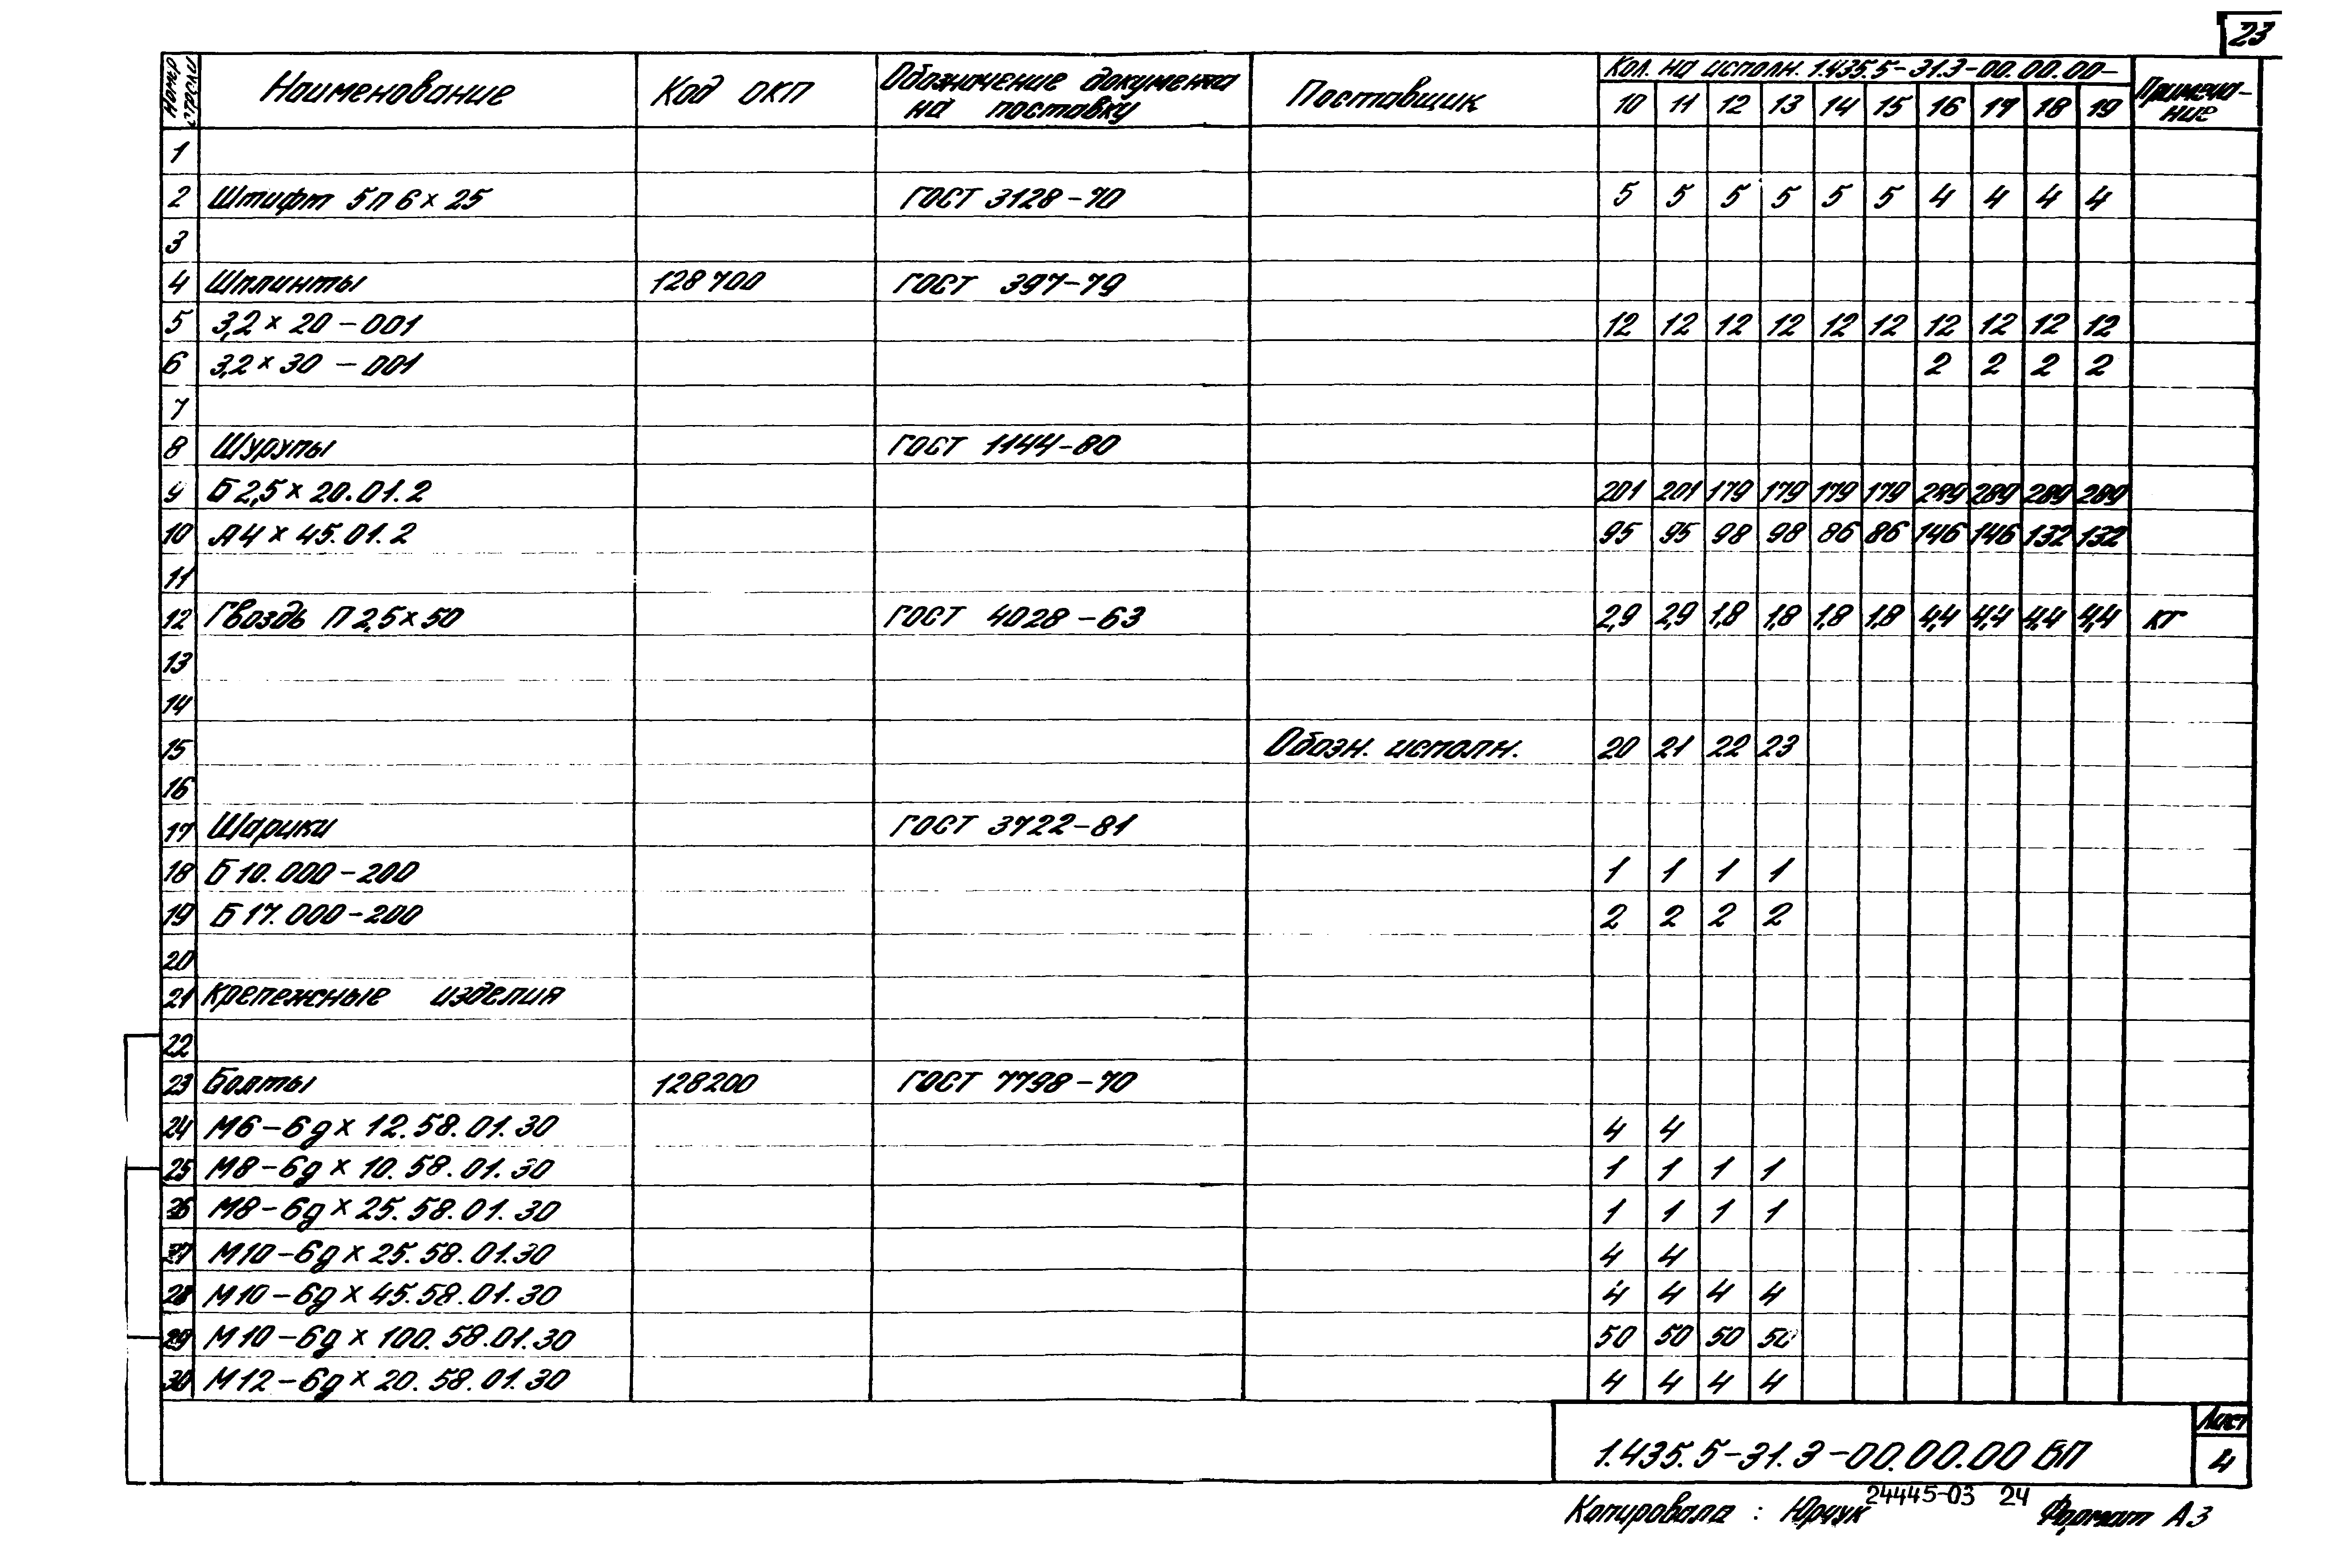 23
Номер строки Наименование Код ОКП Обозначение документа на поставку Поставщик Кол. на исполн. 1.435.5-31.3-00.00.00- Примечание
10 11 12 13 14 15 16 17 18 19
1
2 Штифт 5п6×25 ГОСТ 3128-70 5 5 5 5 5 5 4 4 4 4
3
4 Шплинты 128700 ГОСТ 397-79
5 3,2×20-001 12 12 12 12 12 12 12 12 12 12
6 3,2×30-001 2 2 2 2
7
8 Шурупы ГОСТ 1144-80
9 Б2,5×20.01.2 201 201 179 179 179 179 289 289 289 289
10 А4×45.01.2 95 95 98 98 86 86 146 146 132 132
11
12 Гвоздь П2,5×50 ГОСТ 4028-63 2,9 2,9 1,8 1,8 1,8 1,8 4,4 4,4 4,4 4,4 кг
13
14
15 Обозн. исполн. 20 21 22 23
16
17 Шарики ГОСТ 3722-81
18 Б10.000-200 1 1 1 1
19 Б17.000-200 2 2 2 2
20
21 Крепежные изделия
22
23 Болты 128200 ГОСТ 7798-70
24 М6-6g×12.58.01.30 4 4
25 М8-6g×10.58.01.30 1 1 1 1
26 М8-6g×25.58.01.30 1 1 1 1
27 М10-6g×25.58.01.30 4 4
28 М10-6g×45.58.01.30 4 4 4 4
29 М10-6g×100.58.01.30 50 50 50 50
30 М12-6g×20.58.01.30 4 4 4 4
1.435.5-31.3-00.00.00 ВП
Лист
4
24445-03 24
Копировала : Юрчук Формат А3